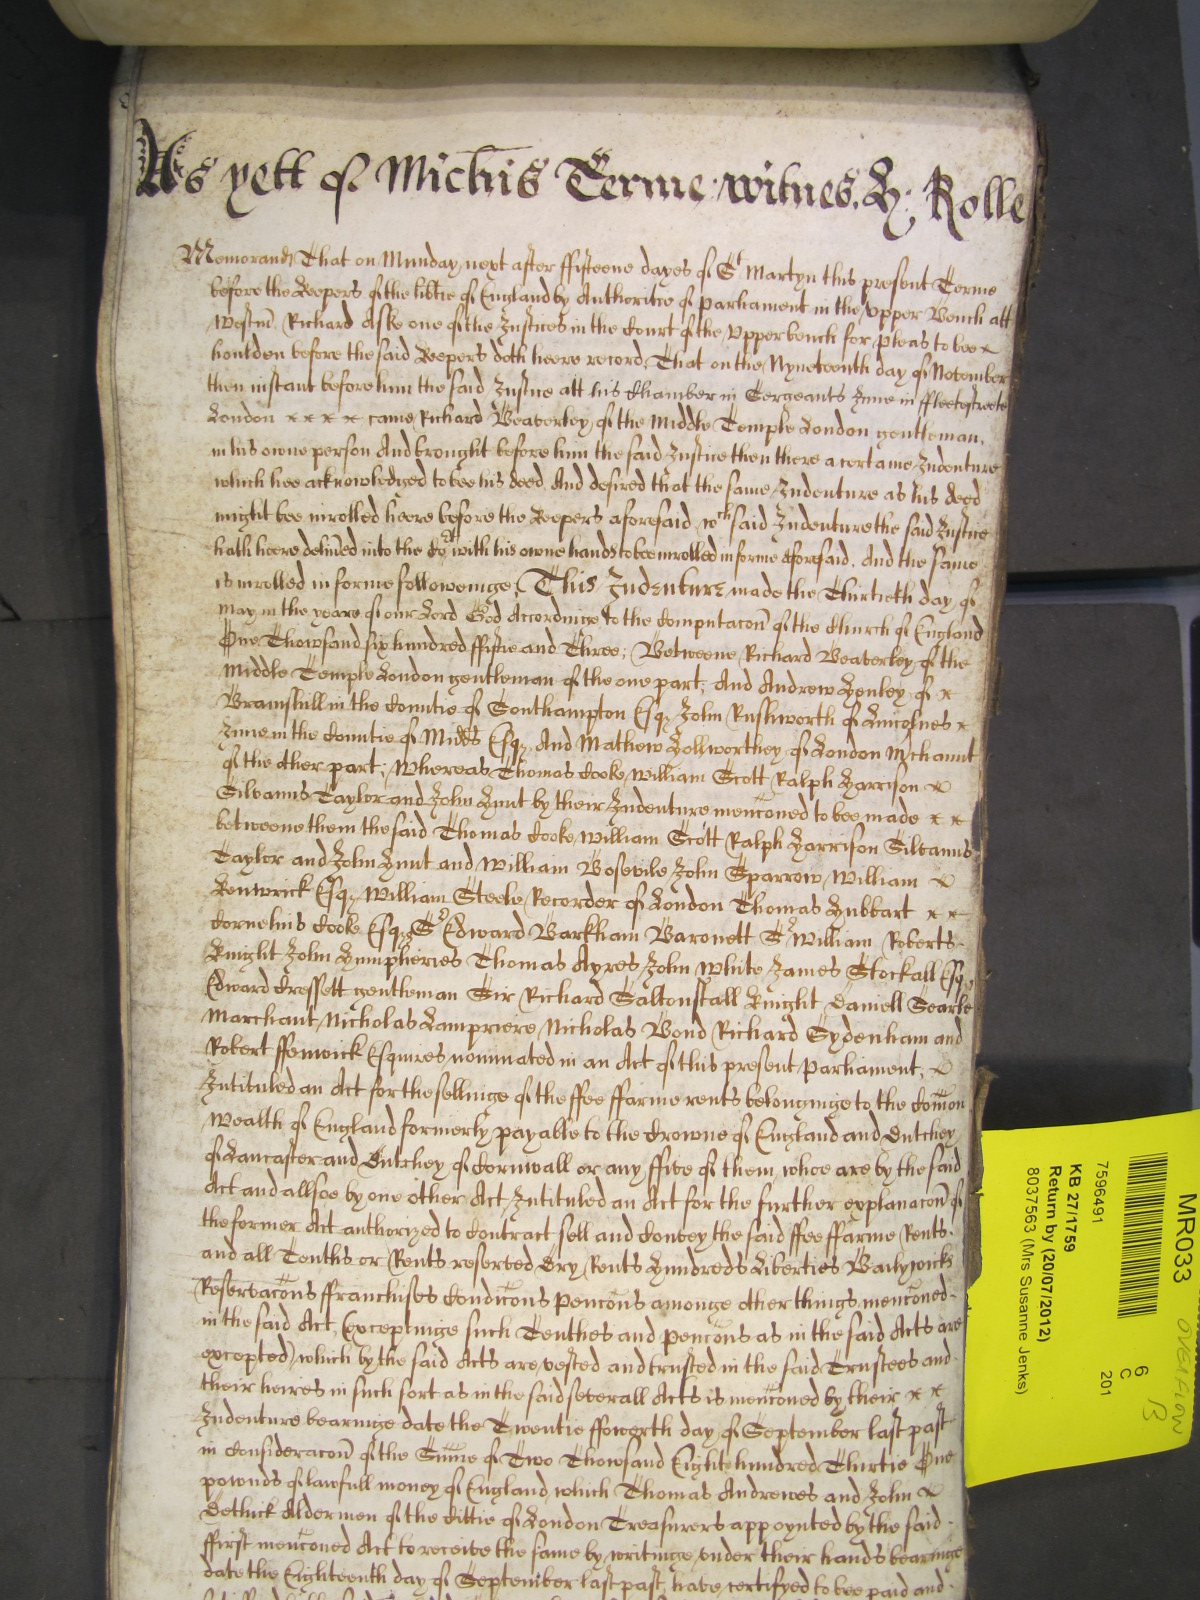 As yett of Michis Terme witnes. H: Rolle
Memorand That on Munday next after ffifteene dayes of St Martyn this present Terme
before the Keepers of the libtie of England by Authoritie of parliament in the Upper Bench att
Westm Richard Aske one of the Justices in the Court of the Upper bench for pleas to bee
houlden before the said Keepers doth heere record That on the Nyneteenth day of November
then instant before him the said Justice att his Chamber in Sergeants Inne in ffleetestreete
London x x x x came Richard Beaverley of the Middle Temple London gentleman,
in his owne person And brought before him the said Justice then there a certaine Indenture
which hee acknowledged to bee his deed And desired that the same Indenture as his deed
might bee inrolled heere before the Keepers aforesaid, wch said Indenture the said Justice
hath heere delived into the Cort with his owne hands to bee inrolled in forme aforesaid. And the same
is inrolled in forme followeinge; This Indenture made the Thirtieth day of
May in the yeare of our Lord God Accordinge to the Computacon of the Church of England
One Thowsand six hundred ffiftie and Three; Betweene Richard Beaverley of the
Middle Temple London gentleman of the one part; And Andrew Henley of x
Bramshill in the Countie of Southampton Esqr John Rushworth of Lincolnes x
Inne in the Countie of Midds Esqr And Mathew Hollworthey of London Mchannt
of the other part; Whereas Thomas Cooke William Scott Ralph Harrison x
Silvanus Taylor and John Hunt by their Indenture menconed to bee made x x
betweene them the said Thomas Cooke William Scott Ralph Harrison Silvanus
Taylor and John Hunt and William Bosevile John Sparrow, William x
Kenwrick Esqr William Steele Recorder of London Thomas Hubbart x x
Cornelius Cooke Esqrs Sr Edward Barkham Baronett Sr William Roberts
Knight John Humpheries Thomas Ayres John White James Stockall Esqrs
Edward Cressett gentleman Sir Richard Saltonstall Knight Daniell Searle
Marchant Nicholas Lampriere, Nicholas Bond Richard Sydenham and
Robert ffenwick Esquires nominated in an Act of this present Parliament, x
Intituled an Act for the sellinge of the ffee ffarme rents belonginge to the Comon
Wealth of England formerly payable to the Crowne of England and Dutchey
of Lancaster and Dutchey of Cornwall or any ffive of them, whoe are by the said
Act and allsoe by one other Act Intituled an Act for the further explanacon of
the former Act authorized to Contract sell and Convey the said ffee ffarme Rents
and all Tenths or Rents reserved Dry Rents Hundreds Liberties Bailywicks
Reservacons ffranchises Condicons pencons amonge other things menconed
in the said Act (exceptinge such Tenthes and pencons as in the said Acts are
excepted) which by the said Acts are vested and trusted in the said Trustees and
their heires in such sort as in the said severall Acts is menconed by their x x
Indenture bearinge date the Twentie ffowerth day of September last past
in Consideracon of the Sume of Two Thowsand Eight hundred Thirtie One
pownds of lawfull money of England, which Thomas Andrewes and John x
Dethick Aldermen of the Cittie of London Treasurers appoynted by the said
ffirst menconed Act to receive the same by writinge under their hands bearinge
date the Eighteenth day of September last past, have certifyed to bee paid and
MR033
6
C
201
7596491
KB 27/1759
Return by (20/07/2012)
8037563 (Mrs Susanne Jenks)
overflow
13